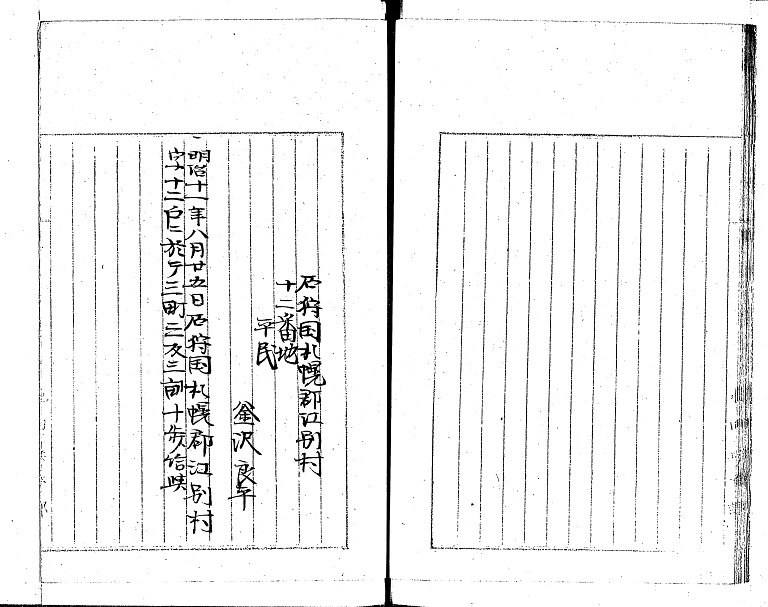 石狩国札幌郡江別村
十二番地
平民
金沢良平
一明治十一年八月廿五日石狩国札幌郡江別村
字十二戸ニ於テ三町二反三畝十歩